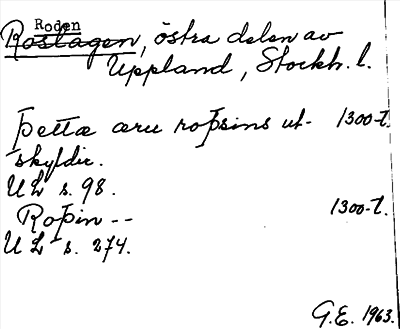 Roden
Roslagen, östra delen av
Uppland, Stockh. l.
Þettæ æru roþsins ut- 1300-t.
skyldir.
UL s. 98.
Roþin -- 1300-t.
UL s. 274.
G.E. 1963.